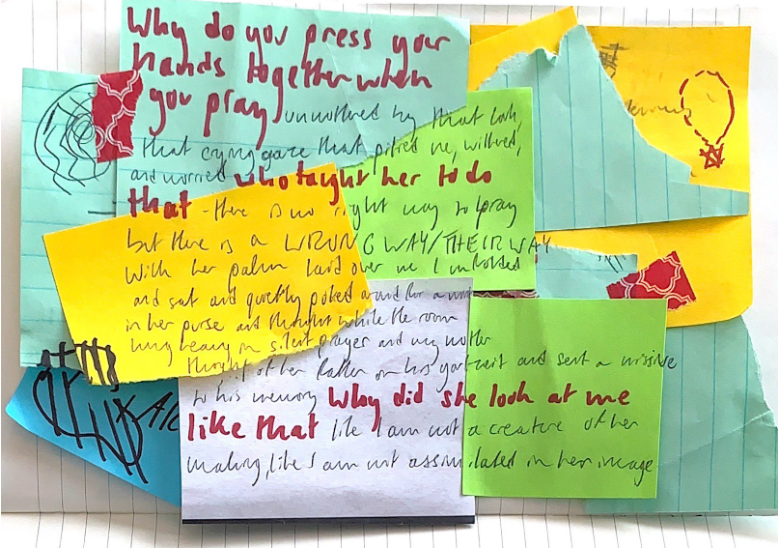 Why do you press your
hands together when
you pray unmothered by that look,
that crying gaze that pitied me, withered,
and worried who taught her to do
that - there is no right way to pray
but there is a WRONG WAY/THEIR WAY
With her palm laid over me I unfolded
and sat and quietly poked around for a mint
in her purse and thought while the room
hung heavy in silent prayer and my mother
thought of her father on his and sent a missive
to his memory Why did she look at me
like that like I am not a creature of her
making, like I am not assimilated in her image